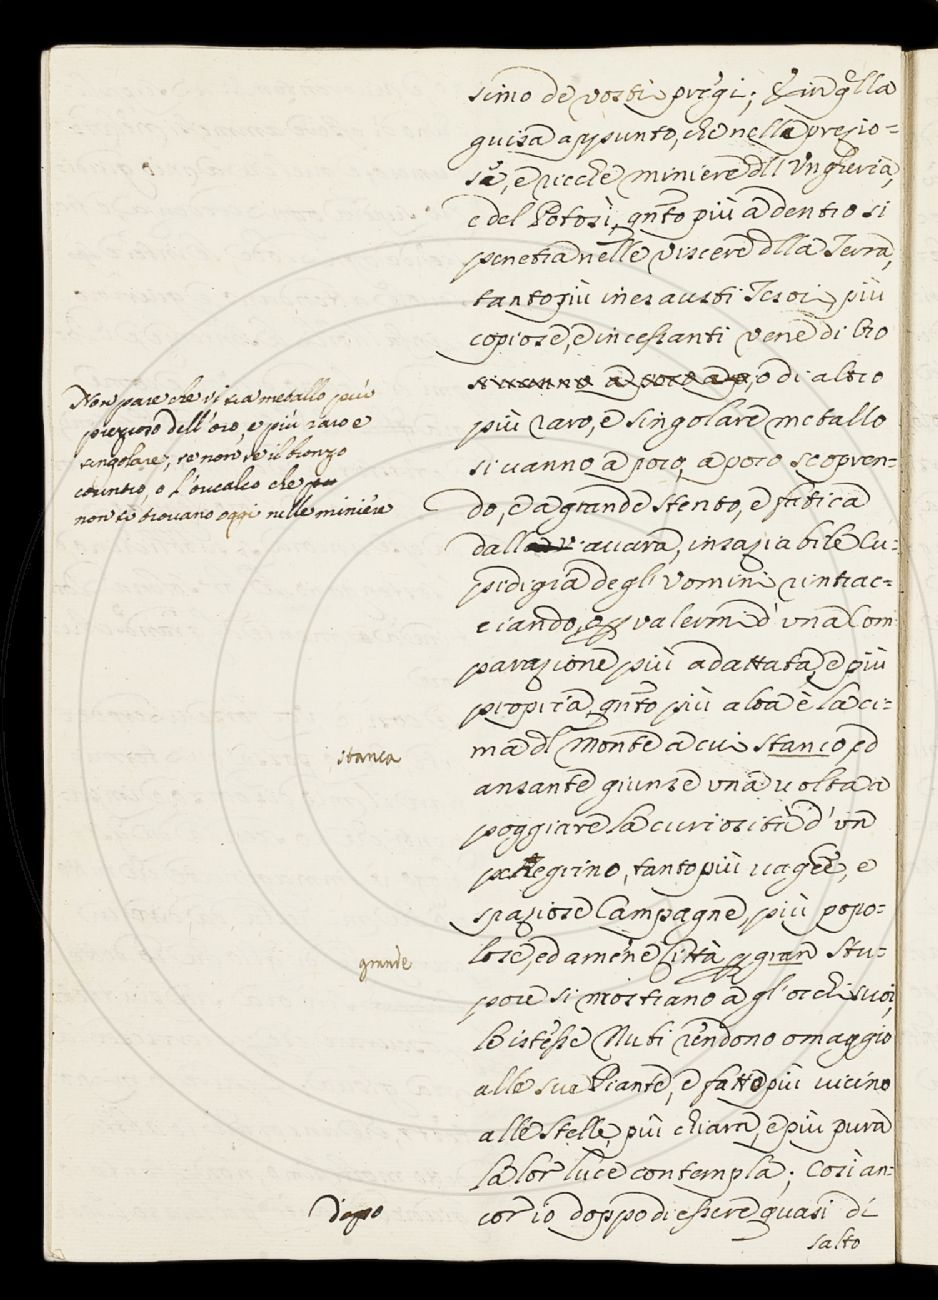 simo de vostri pregi; E in qlla
guisa appunto, che nelle presio=
se, e ricche miniere dll Vngheria,
e del Potosì, qnto più a dentro si
penetra nelle viscere dlla Terra,
tanto più inesausti Tesori, più
copiose, e incessanti vene di Oro
si vanno a poco a p, o di altro
più raro, e singolare metallo
si uanno a poco, a poco scopren=
do, e a grande stento, e fatica
dall auara, insaziabile Cu=
pidigia degl' Vomini rintrac=
ciando, o p valermi d' vna Com
parazione più adattata, e più
propria, qnto più alta è la ci=
ma dl Monte a cui stanco, ed
ansante giunse vna uolta a
poggiare la curiosità d' vn
pellegrino, tanto più uaghe, e
spaziose Campagne, più popo=
lose, ed amene Città p gran Stu=
pore si mostrano a gl' occhi suoi,
le istesse Nubi rendono omaggio
alle sue Piante, e fatto più uicino
alle Stelle, più chiara, e più pura
la lor luce contempla; Così an=
cor io doppo di essere quasi di
salto
Non pare che vi sia metallo più
prezioso dell' oro, e più raro e
singolare, se non se il bronzo
corintio, o l' oricalco che
non si trovano oggi nelle miniere
stanca
grande
dopo